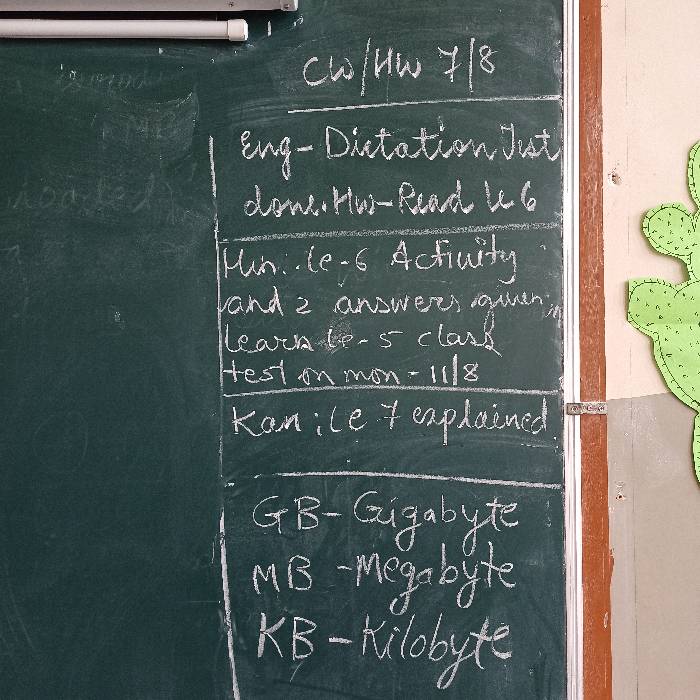 CW/HW 7/8
Eng- Dictation Test
done. Hw-Read le 6
Hin:. le-6 Activity
and 2 answers given.
learn le-5 class
test on mon - 11/8
Kan : le 7 explained
GB- Gigabyte
MB -Megabyte
KB - Kilobyte